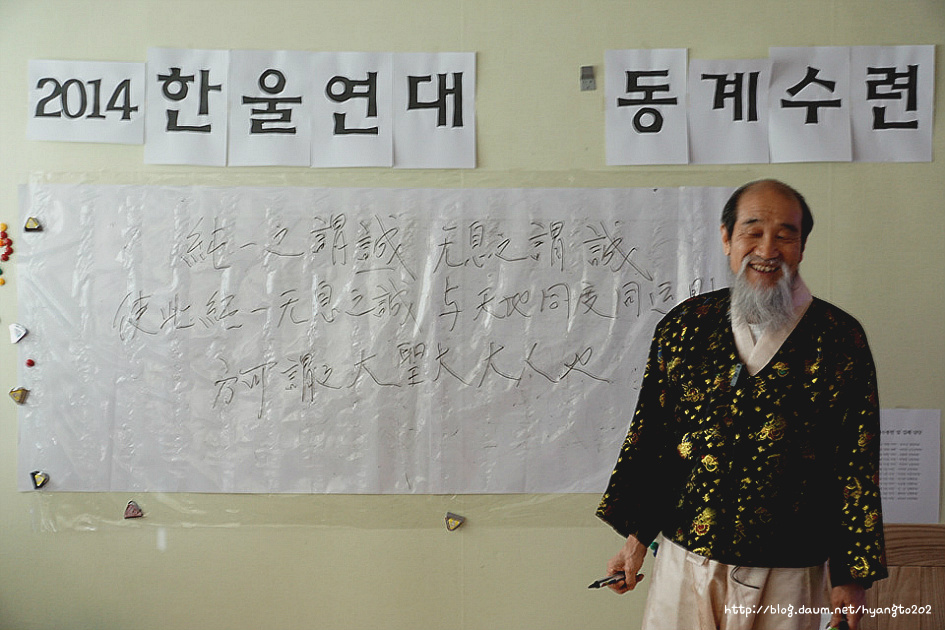 2014 한울연대 동계수련
純一之謂誠 无息之謂誠
使此純一无息之誠 与天地同度同运則
方可謂之大聖大大人也
http://blog.daum.net/hyangto202